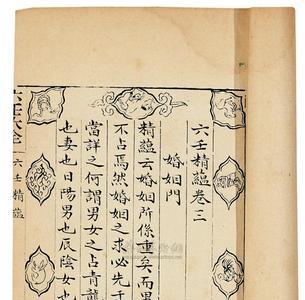 六壬精蘊卷三
婚姻門
精蘊云婚姻所係重矣而畢
不占焉然婚姻之求必先于
當詳之何謂男女之占青龍
也妻也日陽男也辰陰女也
六壬精蘊